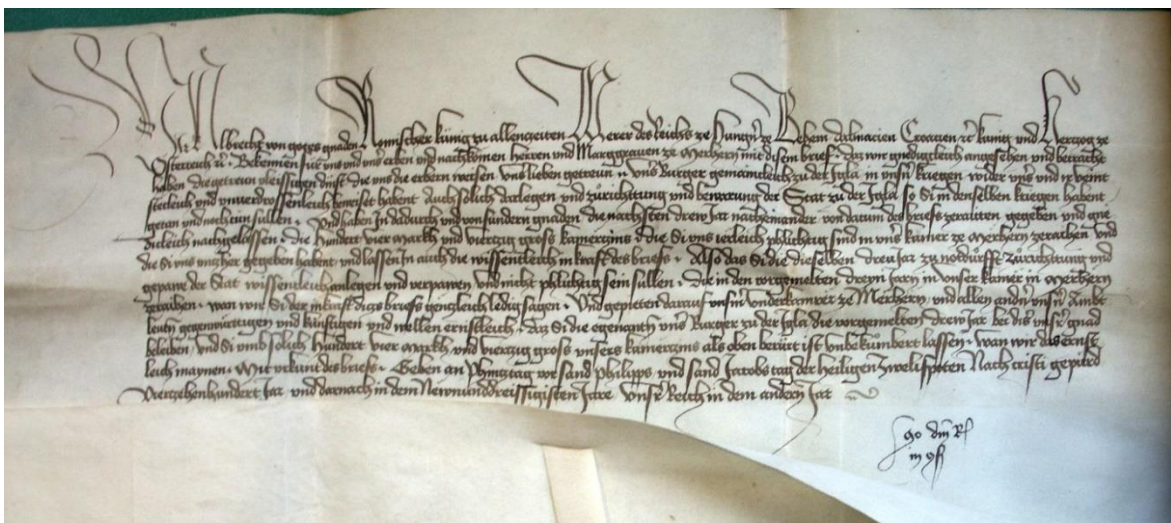 Wir Albrecht von gottes gnaden Romischer kunig zu allenczeiten Merer des Reichs ze Hungern ze Behem Dalmacien Croacien etc kunig und Herczog ze
Osterreich etc. Bekennen fur uns und uns erben und nachkomen herren und Marggraven ze Merhern mit disem brief. daz wir gnedigleich angesehen und betracht
haben die getreun vleissigen dinst die uns die erbern weisen uns lieben getreun N uns Burger gemainkleich zu der Igla in unsern kriegen wider uns veint
stetleich und unverdrossenleich beweiset habent Auch solich darlegen und zurichtung und bewarung der Stat zu der Igla so Si in denselben kriegen habent
getan und noch tun sullen. Und haben In dadurch und von sundern gnaden die nachsten drew Jar nacheinander von datum des briefs zeraitten gegeben und gne
dicleich nachgelassen. die hundert vier markh und vierczig gross kamerczins die Si uns ierleich phlichtig sind in uns kamer ze Merhern zeraihen und
die Si uns unczher gegeben habent und lassen In auch die wissentleich in kraft des briefs. Also das Si die dieselben drew Jar zu notdurfft zurichtung und
gepaue der Stat wissentleich anlegen und verpawen und nicht phlichtig sein sullen. die in den vorgemelten dreyn Jarn in unser kamer in Merhern
zeraihen. wan wir Si der in kraft dicz briefs genczleich ledig sagen. Und gepieten darauf unserm undterkamrer ze Merhern, und allen andern unsern Ambt
leuten gegenwurtigen und kunftigen und wellen ernstleich. daz Si die egenanten uns Burger zu der Igla die vorgemelten drew Jar bei diser unser gnad
beleiben, und Si umb solich hundert vier markh und vierczig gross unsers kamerczins als oben berurt ist unbekumbert lassen. wan wir das ernst
leich maynen. Mit urkunt des briefs. Geben an Phincztag vor sand Philipps und sand Jacobs tag der heiligen Zwelifpoten Nach cristi gepurd
Vierczehenhundert Jar und darnach in dem Newnunddreissigisten Jare Unser Reich in dem andern Jar